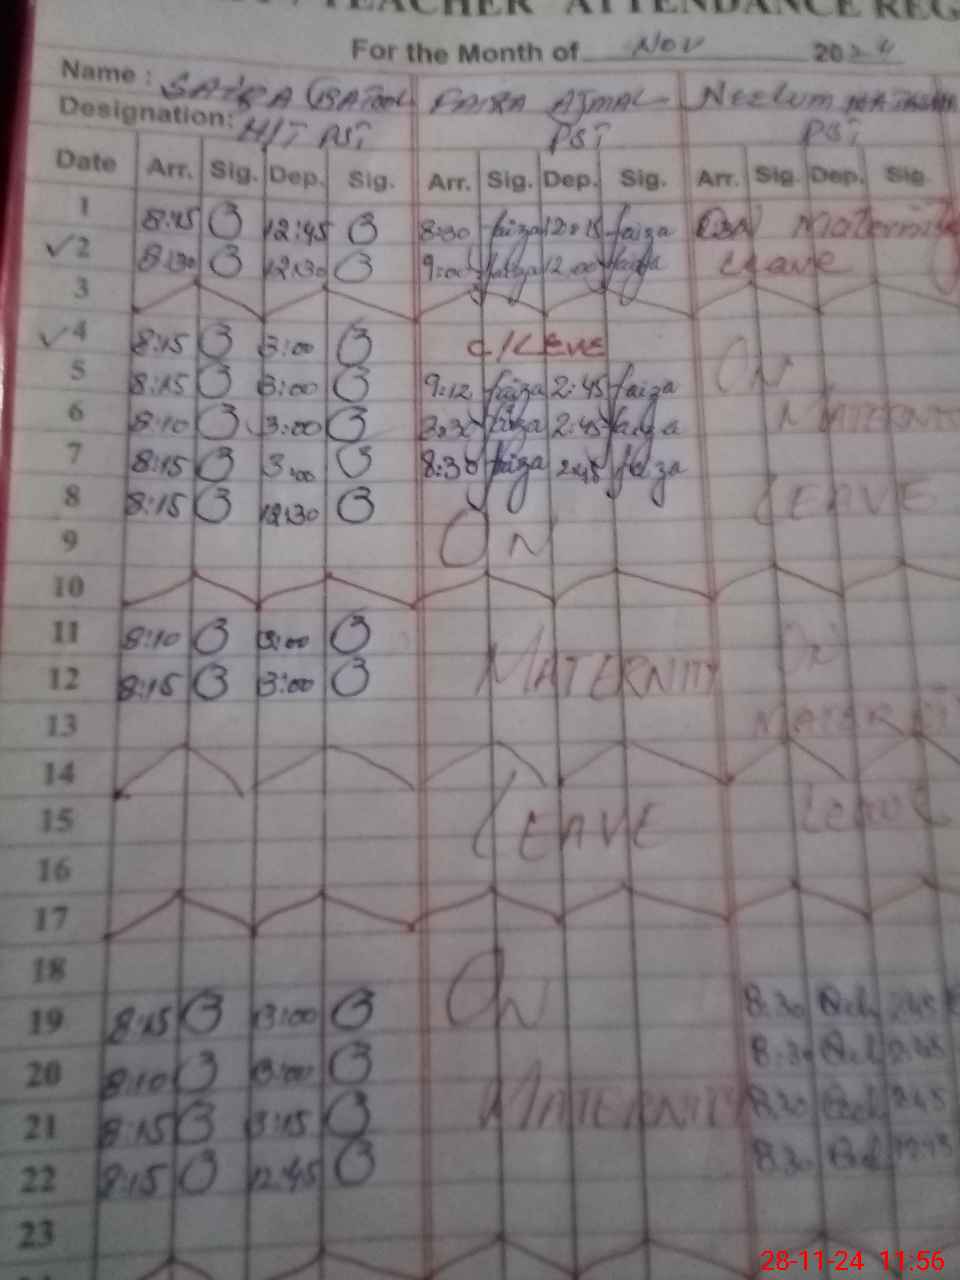 TEACHER ATTENDANCE REG
For the Month of Nov 2024
Name : SAIRA BATOOL FAIZA AJMAL Neelum
Designation: H/T PST PST PST
Date Arr. Sig. Dep. Sig. Arr. Sig. Dep. Sig. Arr. Sig. Dep. Sig.
1 8:45 12:45 8:30 faiza 12:15 faiza On Maternity
2 8:30 12:30 9:00 faiza 12:00 faiza Leave
3
4 8:15 3:00 C/LEVE ON
5 8:15 3:00 9:12 faiza 2:45 faiza
6 8:10 3:00 8:30 faiza 2:45 faiza MATERNIT
7 8:15 3:00 8:30 faiza 2:45 faiza
8 8:15 12:30 LEAVE
9 ON
10
11 8:10 3:00 On
12 8:15 3:00 MATERNITY
13
14
15 LEAVE Leave
16
17
18
19 8:15 3:00 ON 8:30 2:45
20 8:10 3:00 8:30 2:45
21 8:15 3:15 MATERNITY 8:30 2:45
22 8:15 12:45 8:30 12:45
23
28-11-24 11:56